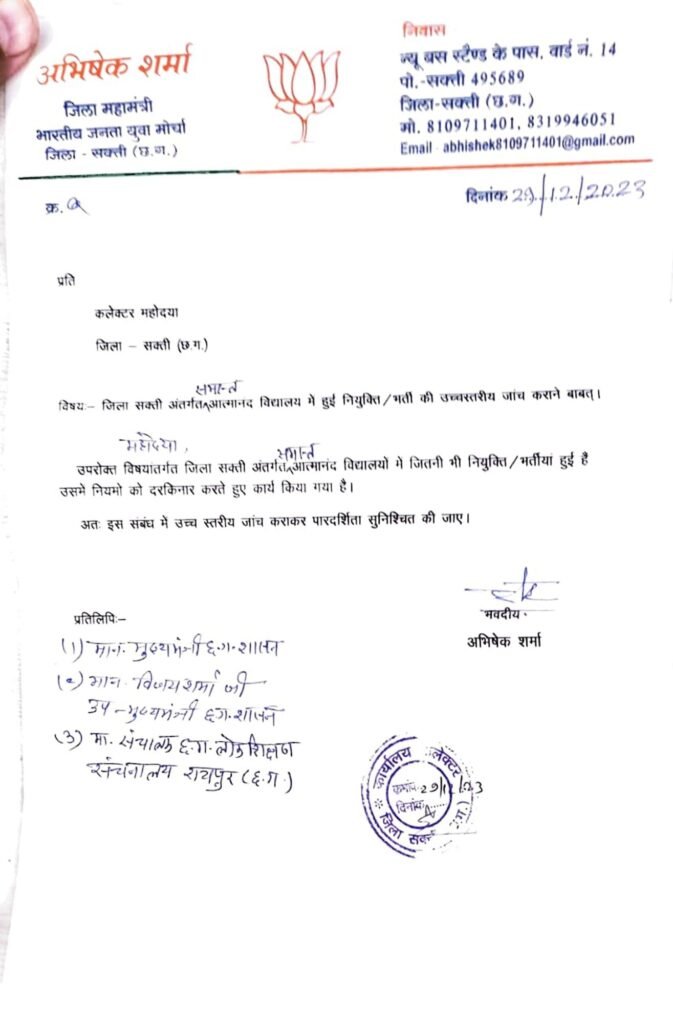 अभिषेक शर्मा
जिला महामंत्री
भारतीय जनता युवा मोर्चा
जिला - सक्ती (छ.ग.)
निवास
न्यू बस स्टैण्ड के पास, वार्ड नं. 14
पो.-सक्ती 495689
जिला-सक्ती (छ.ग.)
मो. 8109711401, 8319946051
Email - abhishek8109711401@gmail.com
क्र.
दिनांक 29/12/2023
प्रति
कलेक्टर महोदया
जिला – सक्ती (छ.ग.)
समस्त
विषयः– जिला सक्ती अंतर्गत आत्मानद विद्यालय मे हुई नियुक्ति/भर्ती की उच्चस्तरीय जांच कराने बाबत्।
महोदया,
समस्त
उपरोक्त विषयांतर्गत जिला सक्ती अंतर्गत आत्मानंद विद्यालयो मे जितनी भी नियुक्ति/भर्तीयां हुई है
उसमे नियमो को दरकिनार करते हुए कार्य किया गया है।
अतः इस संबंध में उच्च स्तरीय जांच कराकर पारदर्शिता सुनिश्चित की जाए।
भवदीय
अभिषेक शर्मा
प्रतिलिपिः–
(1) मान. मुख्यमंत्री छ.ग. शासन
(2) मान. विजय शर्मा जी
उप-मुख्यमंत्री छ.ग. शासन
(3) मा. संचालक छ.ग. लोक शिक्षण
संचनालय रायपुर (छ.ग.)
कार्यालय कलेक्टर
क्रमांक 29/12/23
दिनांक
जिला सक्ती